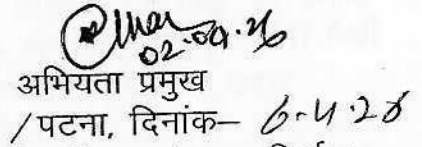 02.04.26
अभियता प्रमुख
/पटना, दिनांक– 6.4.26